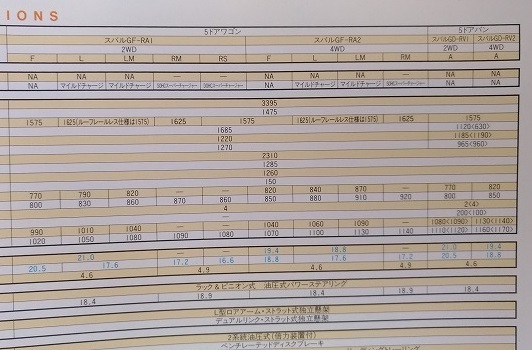 IONS
5ドアワゴン 5ドアバン
スバルGF-RA1 スバルGF-RA2 スバルGD-RV1 スバルGD-RV2
2WD 4WD 2WD 4WD
F L LM RM RS F L LM RM A A
NA NA NA — — NA NA NA — NA NA
NA マイルドチャージ マイルドチャージ DOHCスーパーチャージャー DOHCスーパーチャージャー NA マイルドチャージ マイルドチャージ DOHCスーパーチャージャー NA NA
3395
1475
1575 1625(ルーフレールレス仕様は1575) 1625 1575 1625(ルーフレールレス仕様は1575) 1625 1575
1685 1120<630>
1220 1185<1190>
1270 965<960>
2310
1285
1260
150
770 790 820 — — 820 840 870 — 770 820
800 830 860 870 860 850 880 910 920 800 850
4 2(4)
— 200(100)
990 1010 1040 — — 1040 1060 1090 — 1080<1090> 1130<1140>
1020 1050 1080 1090 1080 1070 1100 1130 1140 1110<1120> 1160<1170>
21.0 — 19.4 18.8 — 21.0 19.4
20.5 17.6 17.2 16.6 18.8 17.6 17.2 20.5 18.8
4.6 4.9 4.6 4.9 4.6
ラック&ピニオン式 油圧式パワーステアリング
18.4 18.9 18.4 18.9 18.4
L型ロアアーム・ストラット式独立懸架
デュアルリンク・ストラット式独立懸架
2系統油圧式(倍力装置付)
ベンチレーテッドディスクブレーキ